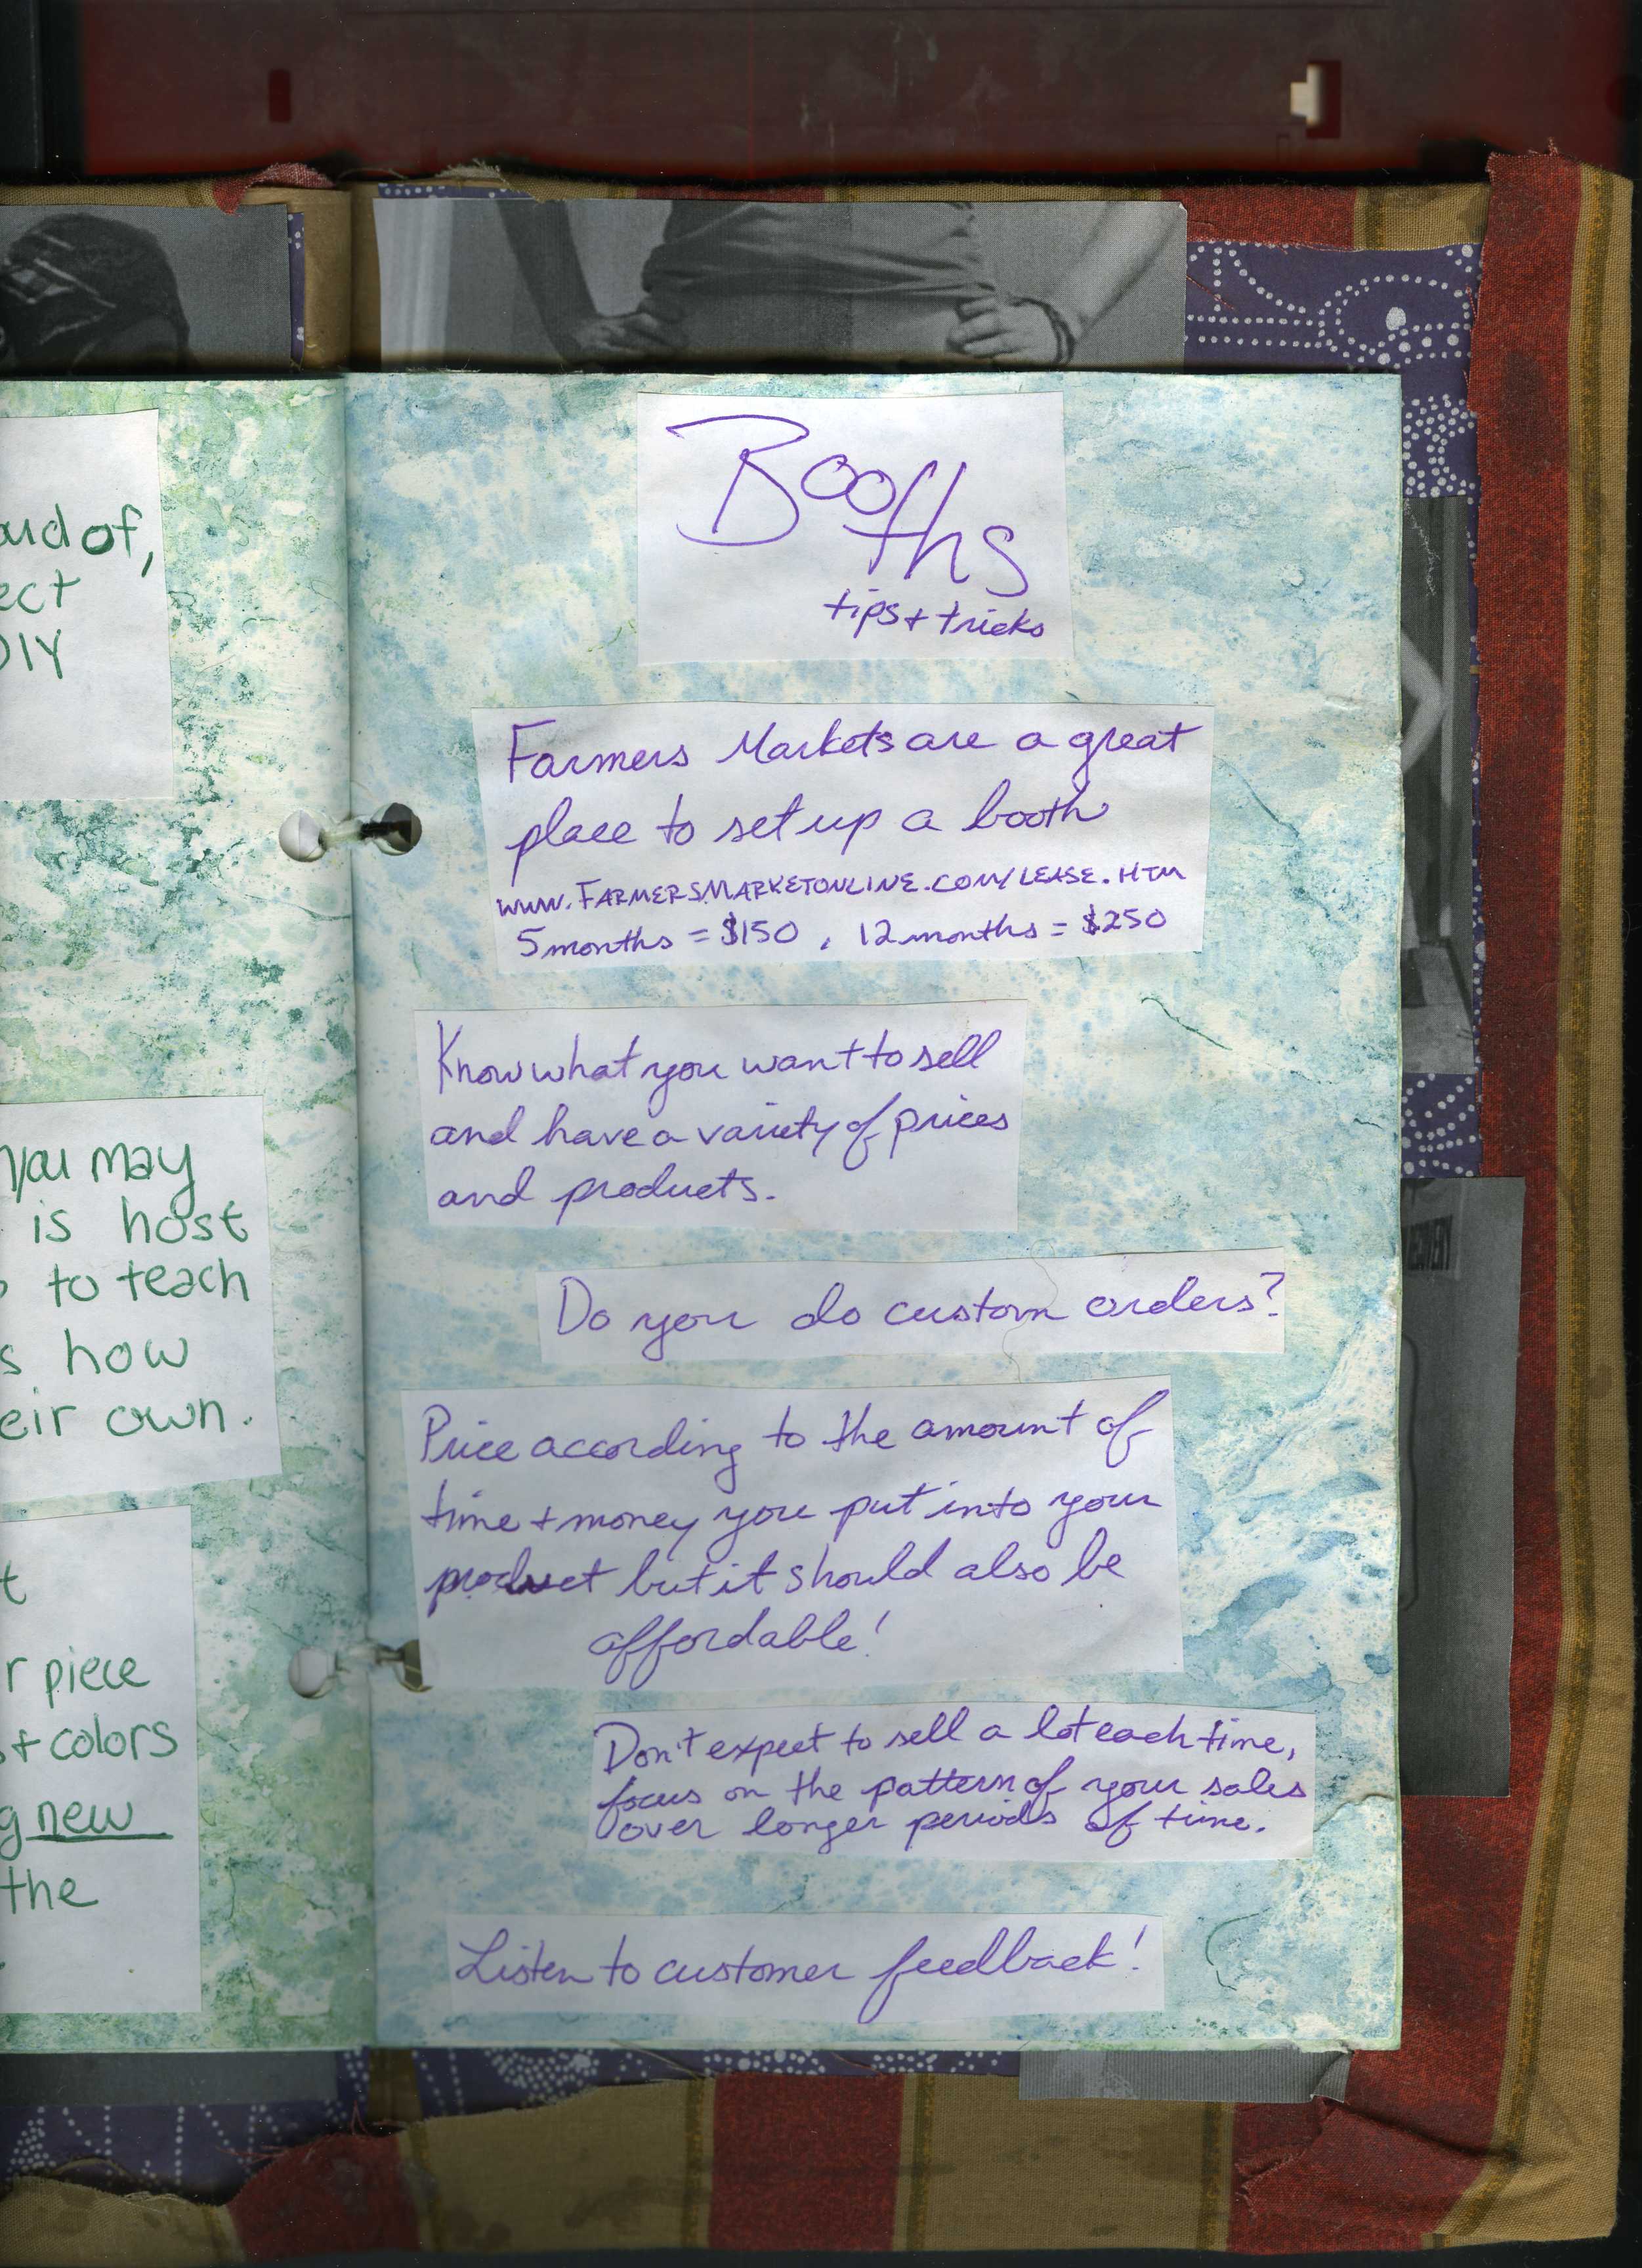 ud of,
ect
DIY
you may
is host
to teach
s how
eir own.
t
r piece
st colors
g new
the
Booths
tips + tricks
Farmers Markets are a great
place to set up a booth
www.FARMERSMARKETONLINE.COM/LEASE.HTM
5 months = $150, 12 months = $250
Know what you want to sell
and have a variety of prices
and products.
Do you do custom orders?
Price according to the amount of
time + money you put into your
product but it should also be
affordable!
Don't expect to sell a lot each time,
focus on the pattern of your sales
over longer periods of time.
Listen to customer feedback!